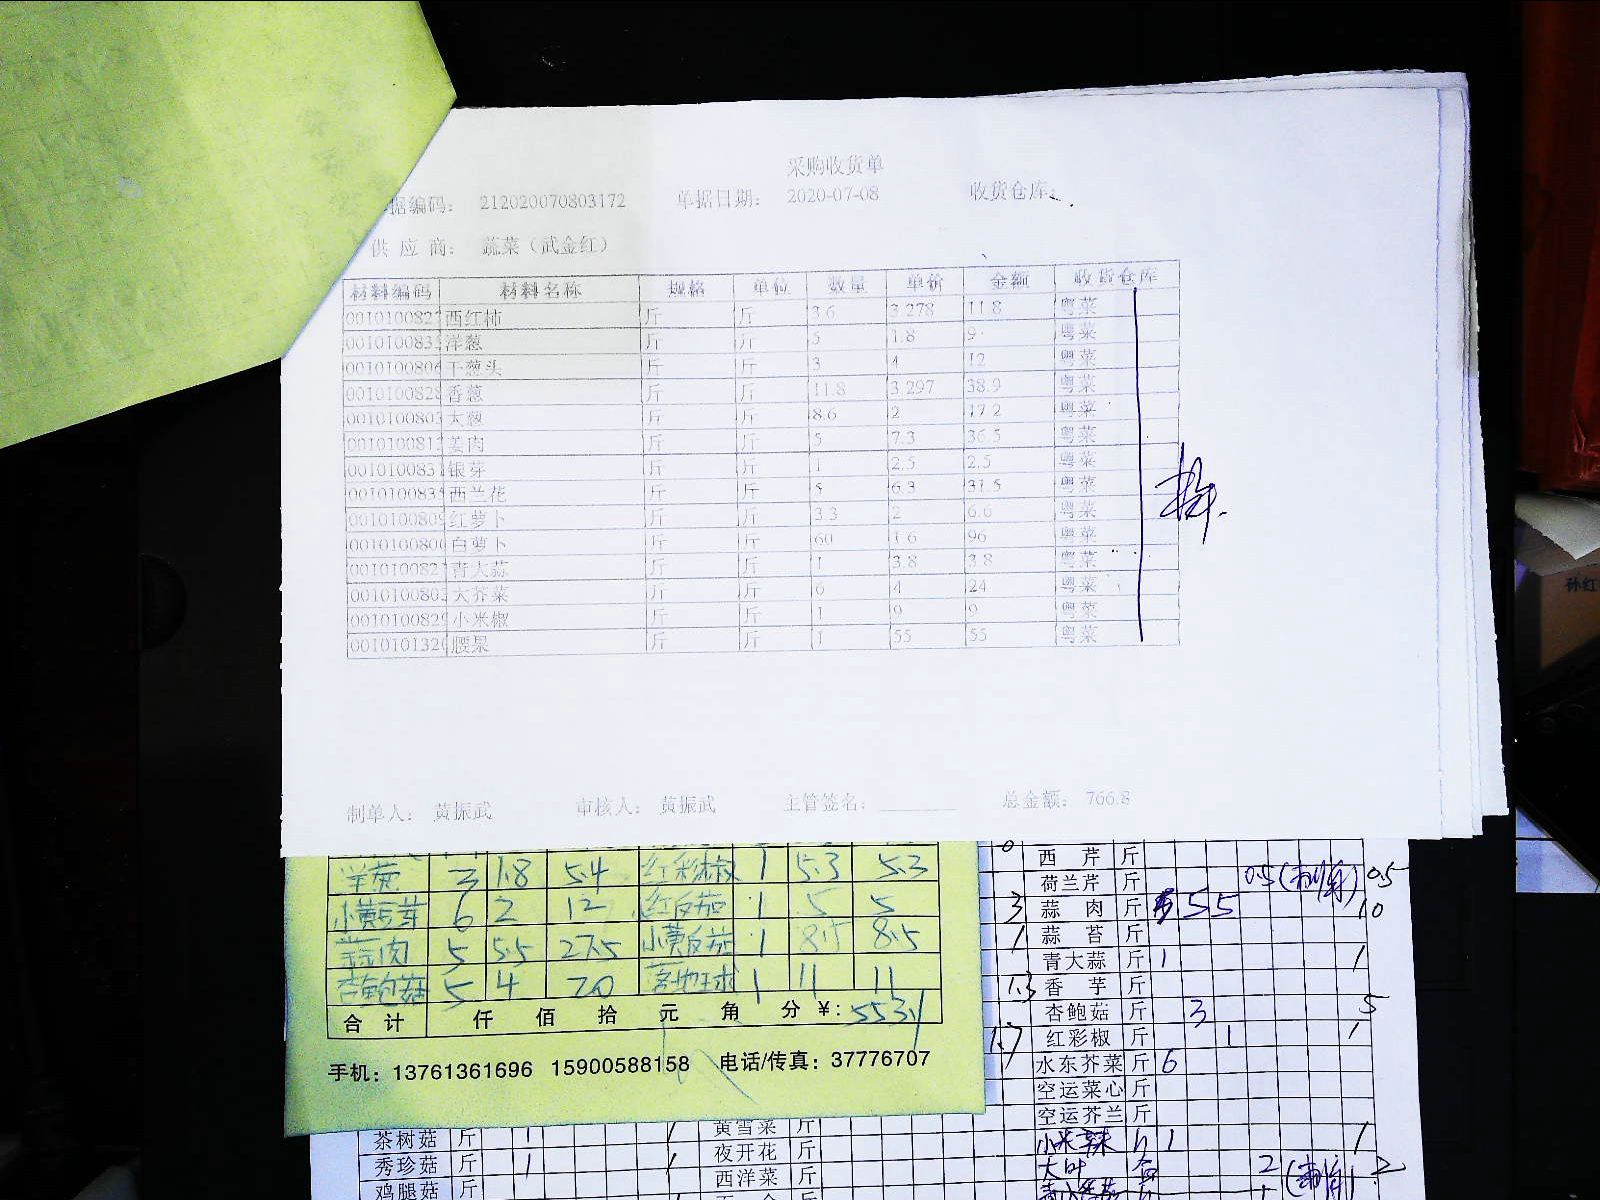 采购收货单
据编码： 212020070803172 单据日期： 2020-07-08 收货仓库：
供应商： 蔬菜（武金红）
材料编码 材料名称 规格 单位 数量 单价 金额 收货仓库
001010082 西红柿 斤 斤 3.6 3.278 11.8 粤菜
001010083 洋葱 斤 斤 5 1.8 9 粤菜
001010080 干葱头 斤 斤 3 4 12 粤菜
001010082 香葱 斤 斤 11.8 3.297 38.9 粤菜
001010080 大葱 斤 斤 8.6 2 17.2 粤菜
001010081 姜肉 斤 斤 5 7.3 36.5 粤菜
001010083 银芽 斤 斤 1 2.5 2.5 粤菜
001010083 西兰花 斤 斤 5 6.3 31.5 粤菜
001010080 红萝卜 斤 斤 3.3 2 6.6 粤菜
001010080 白萝卜 斤 斤 60 1.6 96 粤菜
001010082 青大蒜 斤 斤 1 3.8 3.8 粤菜
001010080 大芥菜 斤 斤 6 4 24 粤菜
001010082 小米椒 斤 斤 1 9 9 粤菜
001010132 腰果 斤 斤 1 55 55 粤菜
制单人： 黄振武 审核人： 黄振武 主管签名： 总金额： 766.8
洋葱 3 1.8 5.4 红彩椒 1 5.3 5.3
小黄豆芽 6 2 12 1 5 5
蒜肉 5 5.5 27.5 1 8.5 8.5
杏鲍菇 5 4 20 1 11 11
合计 仟 佰 拾 元 角 分 ¥:
手机：13761361696 15900588158 电话/传真：37776707
西芹 斤
荷兰芹 斤 0.5 0.5
3 蒜肉 斤 5 5 10
1 蒜苔 斤
青大蒜 斤 1 1
1.3 香芋 斤
杏鲍菇 斤 3 5
1.7 红彩椒 斤 1 1
水东芥菜 斤 6
空运菜心 斤
空运芥兰 斤
小米辣 斤 1 1
大叶 2 2
茶树菇 斤 1 1 黄雪菜 斤
秀珍菇 斤 1 1 夜开花 斤
鸡腿菇 斤 西洋菜 斤
孙红